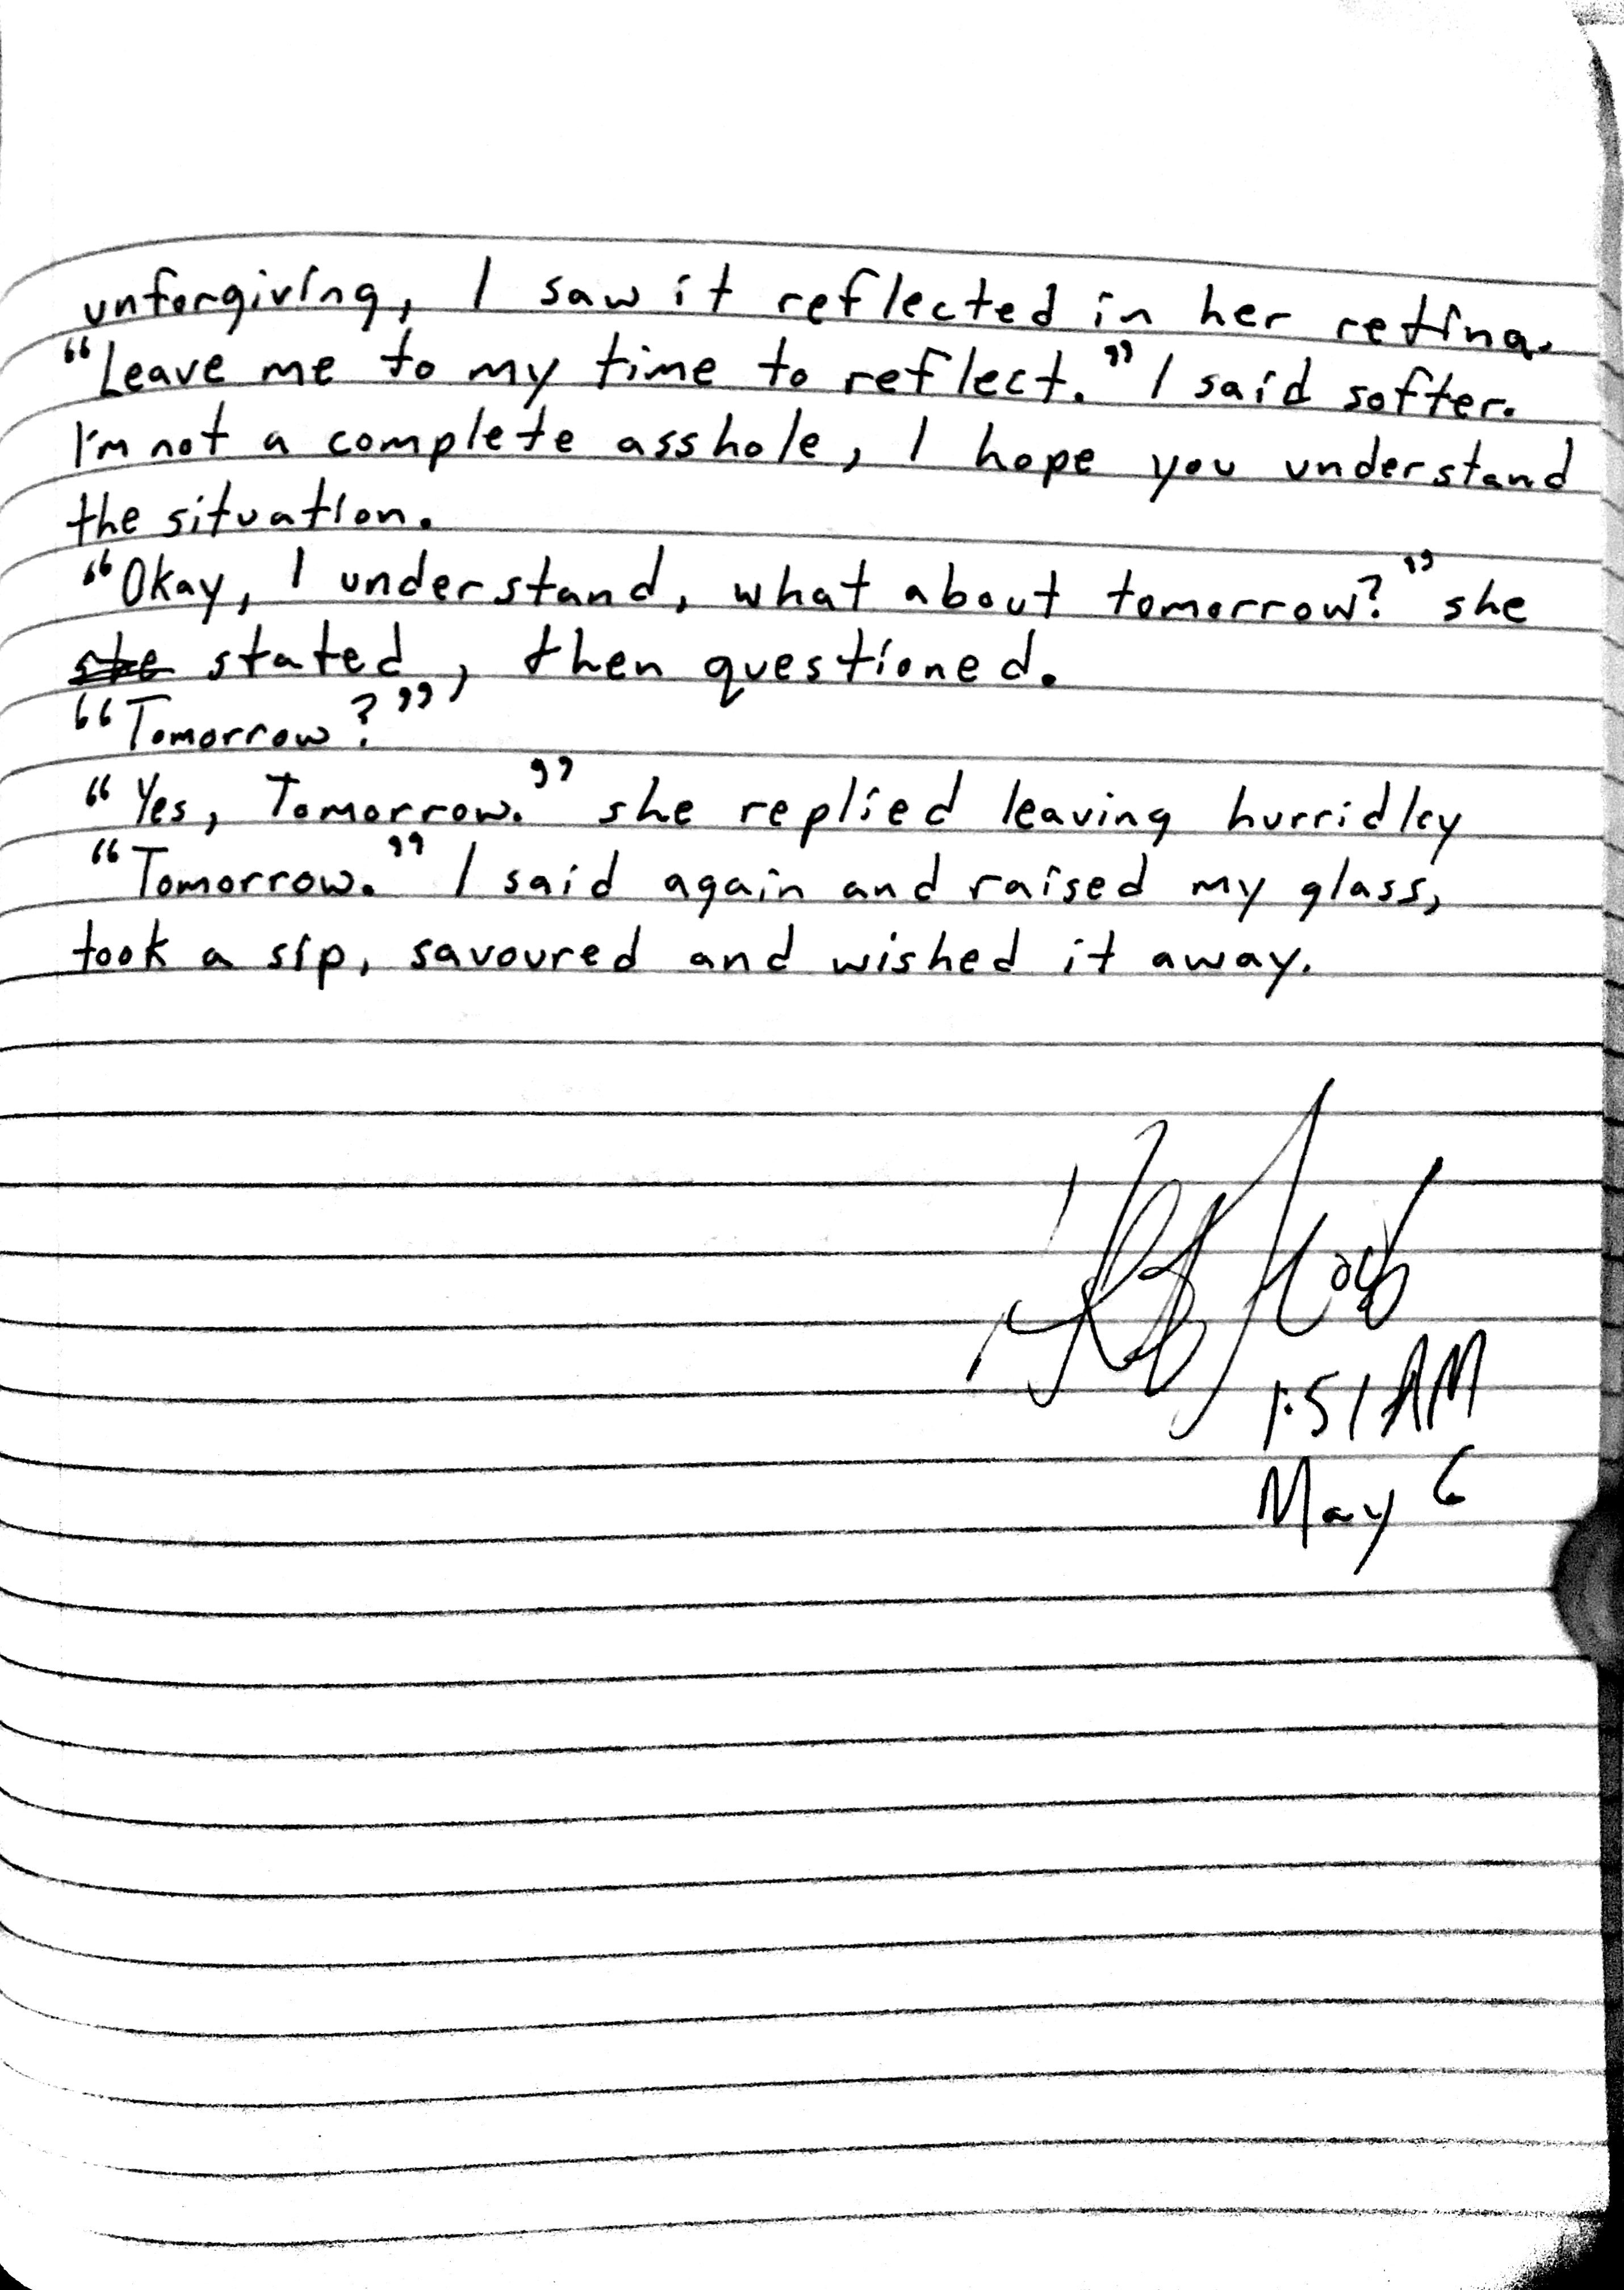 unforgiving, I saw it reflected in her retina.
“Leave me to my time to reflect.” I said softer.
I'm not a complete asshole, I hope you understand
the situation.
“Okay, I understand, what about tomorrow?” she
she stated, then questioned.
“Tomorrow?”
“Yes, Tomorrow.” she replied leaving hurridley
“Tomorrow.” I said again and raised my glass,
took a sip, savoured and wished it away.
1:51 AM
May 6